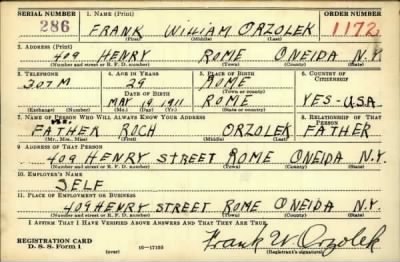 SERIAL NUMBER 1. NAME (Print) ORDER NUMBER
286 FRANK WILLIAM ORZOLEK 1172
(First) (Middle) (Last)
2. ADDRESS (Print)
409 HENRY ROME ONEIDA N.Y.
(Number and street or R. F. D. number) (Town) (County) (State)
3. TELEPHONE 4. AGE IN YEARS 5. PLACE OF BIRTH 6. COUNTRY OF CITIZENSHIP
307M 29 ROME
DATE OF BIRTH (Town or county)
MAY 19 1911 ROME YES-U.S.A.
(Exchange) (Number) (Mo.) (Day) (Yr.) (State or country)
7. NAME OF PERSON WHO WILL ALWAYS KNOW YOUR ADDRESS 8. RELATIONSHIP OF THAT PERSON
FATHER ROCH ORZOLEK FATHER
(Mr., Mrs., Miss) (First) (Middle) (Last)
9. ADDRESS OF THAT PERSON
409 HENRY STREET ROME ONEIDA N.Y.
(Number and street or R. F. D. number) (Town) (County) (State)
10. EMPLOYER'S NAME
SELF
11. PLACE OF EMPLOYMENT OR BUSINESS
409 HENRY STREET ROME ONEIDA N.Y.
(Number and street or R. F. D. number) (Town) (County) (State)
I AFFIRM THAT I HAVE VERIFIED ABOVE ANSWERS AND THAT THEY ARE TRUE.
REGISTRATION CARD
D. S. S. Form 1 (over) 16-17105 Frank W Orzolek
(Registrant's signature)